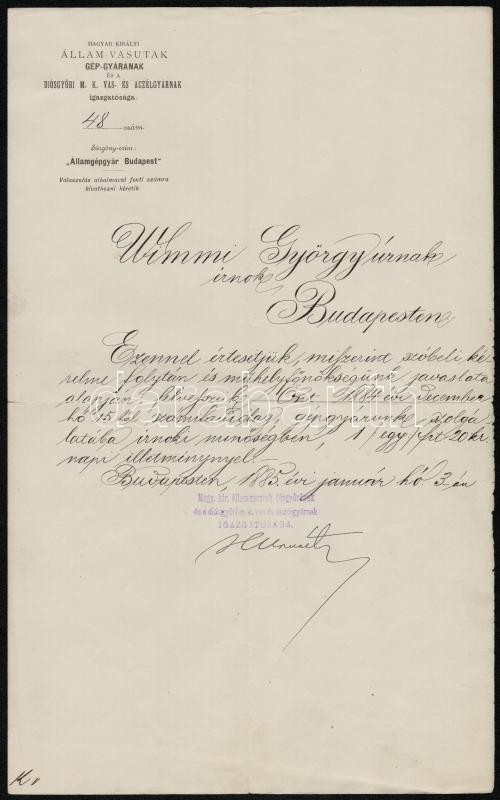 MAGYAR KIRÁLYI
ÁLLAM-VASUTAK
GÉP-GYÁRÁNAK
ÉS A
DIÓSGYŐRI M. K. VAS- ÉS ACZÉLGYÁRNAK
igazgatósága.
48 szám.
Sürgöny-czim:
„Államgépgyár Budapest"
Válaszolás alkalmával fenti számra
hivatkozni kéretik
Wimmi György úrnak
irnok
Budapesten
Ezennel értesitjük, miszerint szóbeli ké-
relme folytán és műhelyfőnökségünk javaslata
alapján felvétetik Önt 1884 évi december
hó 15 től számitandólag, gépgyárunk szolgá
latába irnoki minőségben, 1/egy/frt 20 kr
napi illetménynyel.
Budapesten, 1885. évi január hó 3. án
Magy. kir. államvasutak gépgyárának
és a diósgyőri m. k. vas és aczélgyárnak
IGAZGATÓSÁGA.
K
darabanth